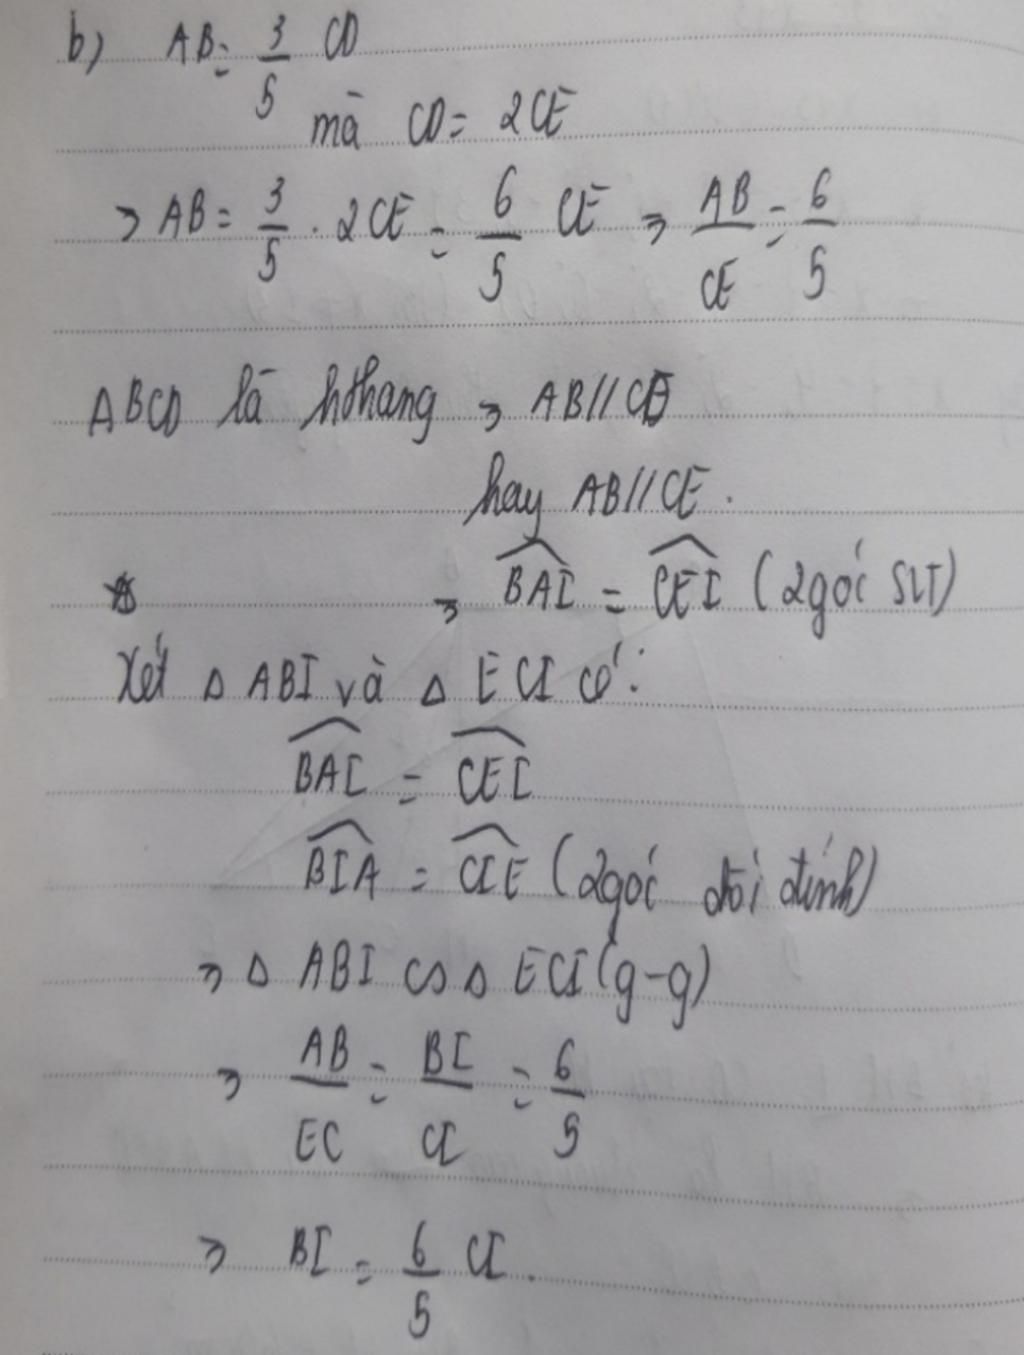 b) AB = 3/5 CD
mà CD = 2CE
⇒ AB = 3/5 . 2CE = 6/5 CE ⇒ AB/CE = 6/5
ABCD là hthang ⇒ AB//CD
hay AB//CE.
⇒ BAI = CEI (2 góc SLT)
Xét Δ ABI và Δ ECI có:
BAI = CEI
BIA = CIE (2 góc đối đỉnh)
⇒ Δ ABI ∽ Δ ECI (g-g)
⇒ AB/EC = BI/CI = 6/5
⇒ BI = 6/5 CI.